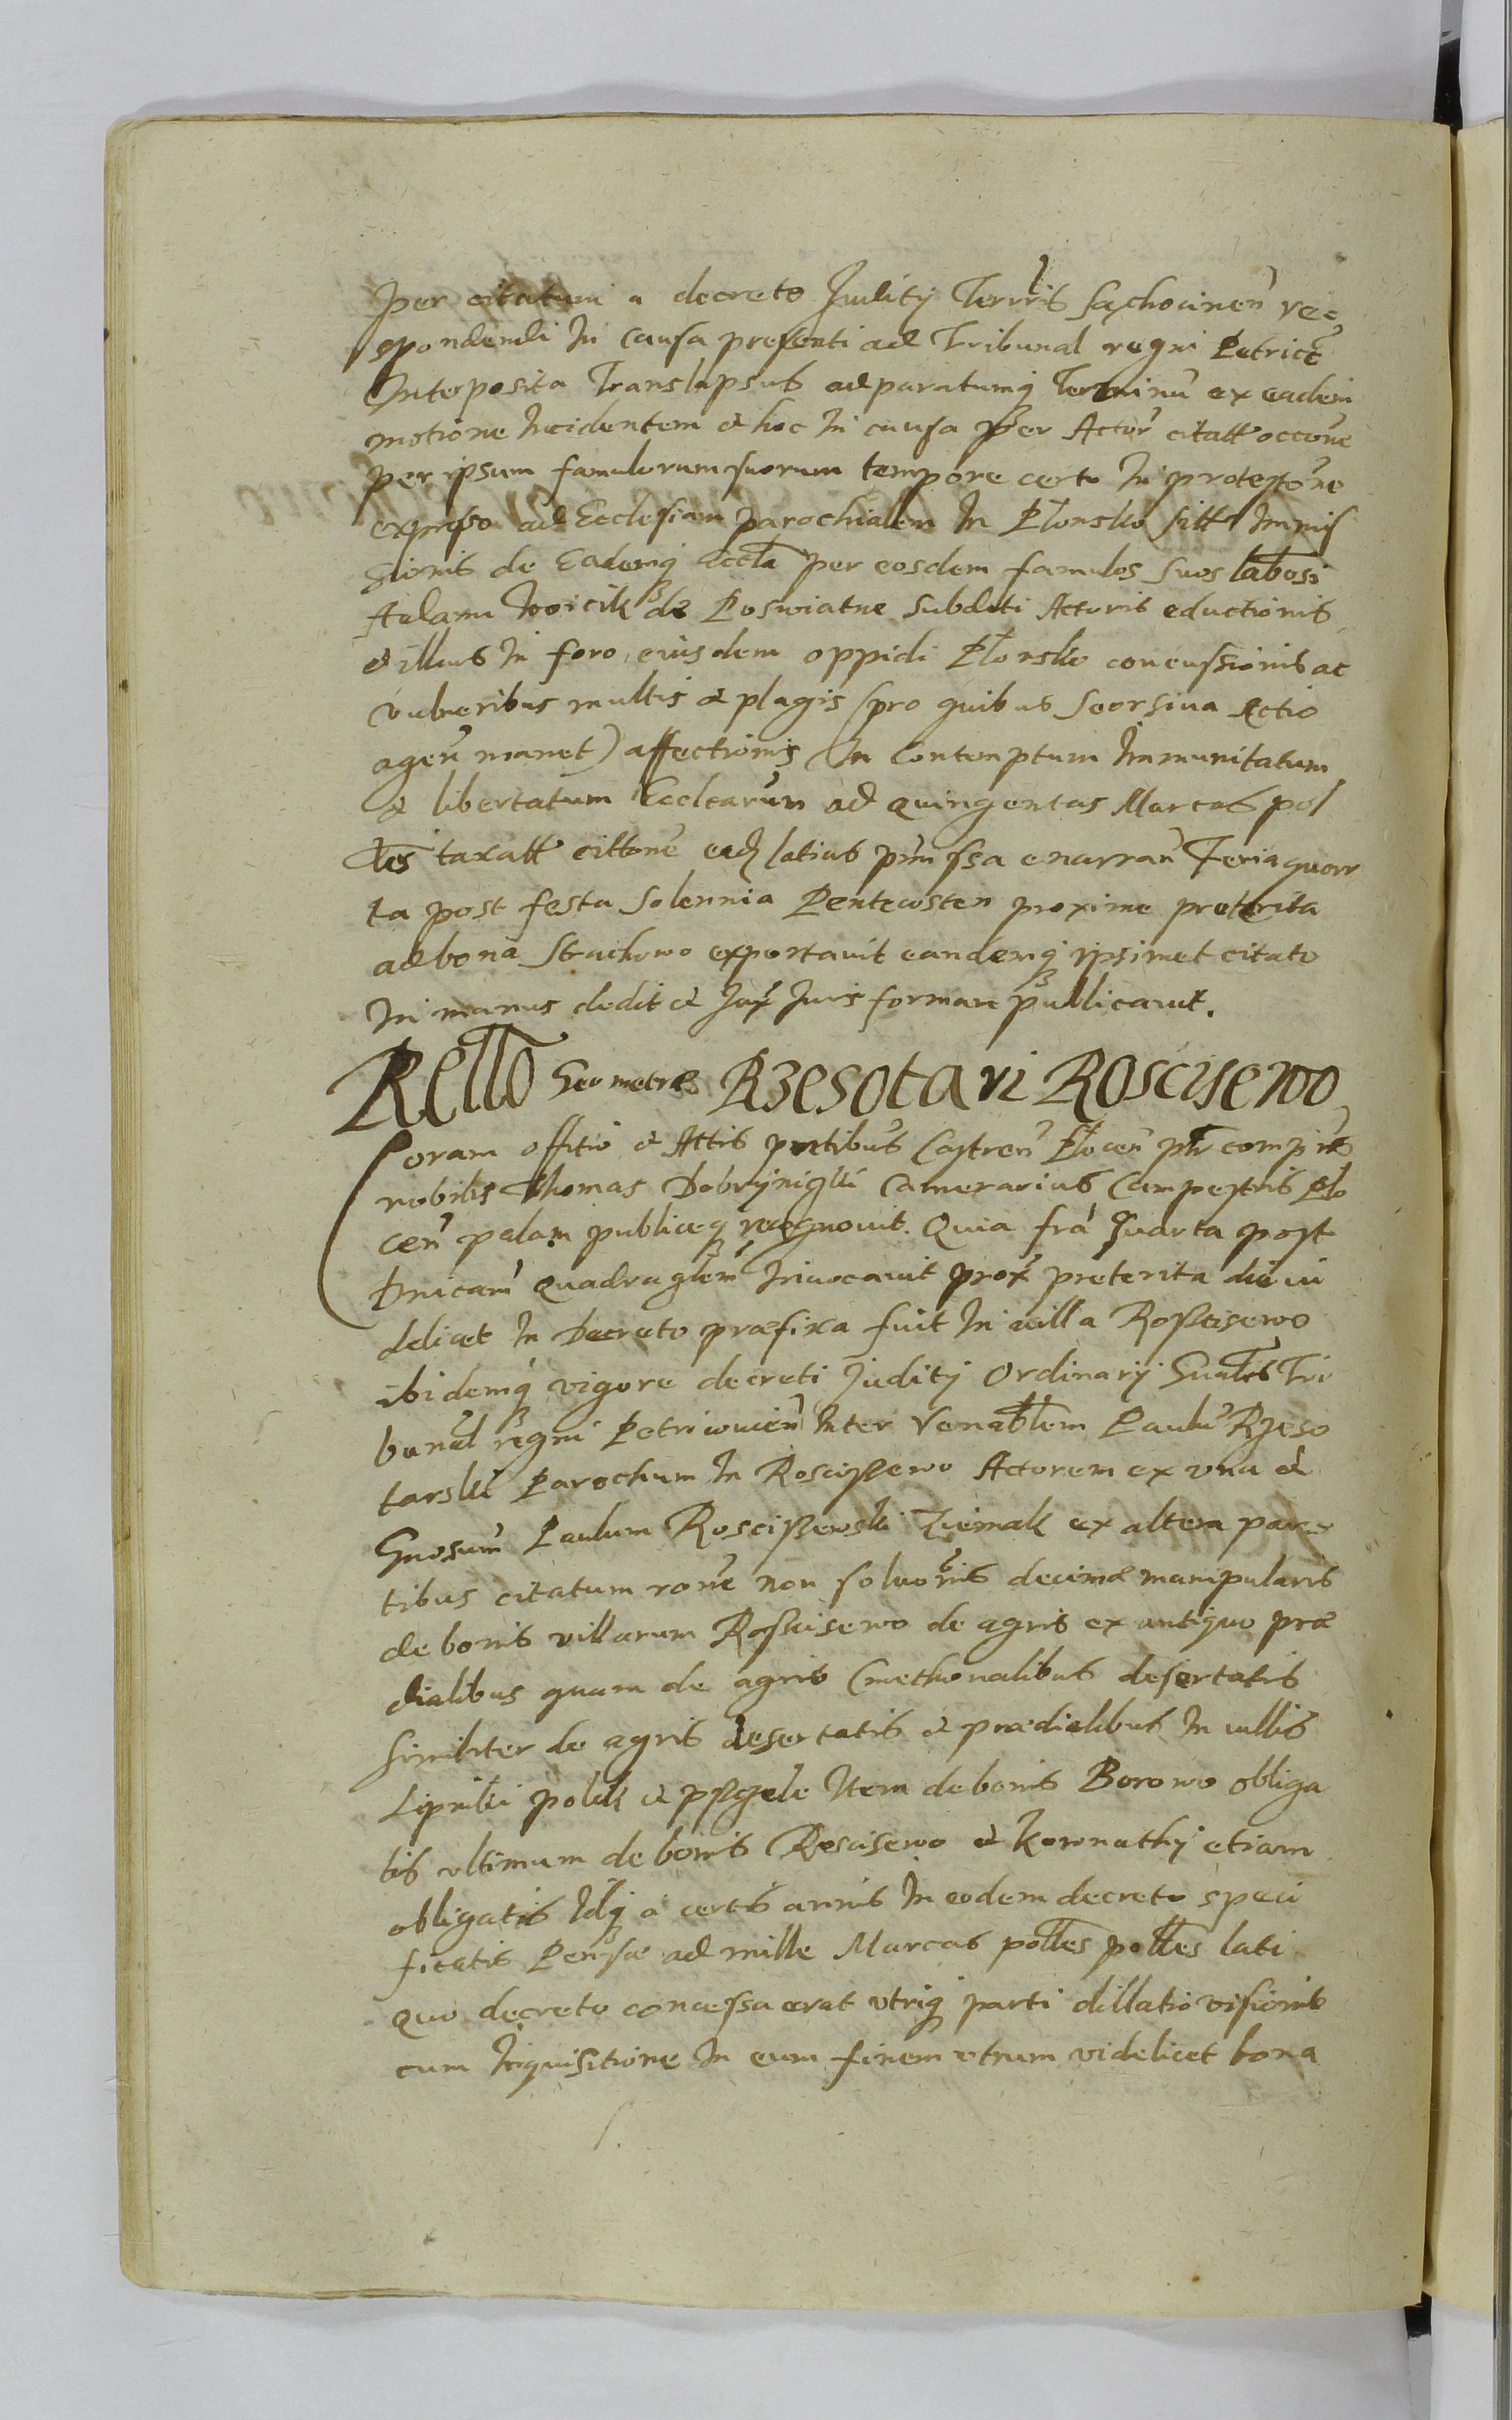 per citatum a decreto Judity Terrris Sąchocinen̄ re=
spondendi In causa presenti ad Tribunal regni Petricē
Interposita Translapsus ad paratumq Terminū ex eadem
motione Incidentem et hoc In causa per Actor̄ citatt occōne
per ipsum famulorum suorum tempore certo In protestōne
expresso ad Ecclesiam parochialem In Płonsko sitt Immis
sionis de Eademq Eccla per eosdem famulos suos labosi
Adami Woicik de Poswiatne subditi Actoris eductionis
et illius In foro eiusdem oppidi Płonsko concussionis ac
vulneribus multis et plagis (pro quibus seorsiua Actio
agen̄ manet) affectionis In Contemptum Immunitatum
et libertatum Ecclearum ad quingentas Marcas pol
les taxatt cittōne eadq latius prmissa enarran̄ Feria quar
ta post festa solennia Pentecosten proxime preterita
ad bona Strachowo exportauit eandemq ipsimet citato
In manus dedit et Jux Juris formam publicauit.
Rello Geometræ Rzesotari Roscisewo
Coram offitio et Attis pntibus Castren̄ Płocen̄ ptr compns
nobilis Thomas Dobrÿniąki Camerarius Campestris Plo
cen̄ palam publiceq recognouit. Quia fra quarta post
Dnicam Quadraglem Inuocauit prox preterita die vi
delicet In Decreto præfixa fuit In villa Rosscisewo
ibidemq vigore decreti Judity Ordinarÿ Gnałes Tri
bunal regni Petricouien̄ Inter Venablem Paulū Rzeso
tarski Parochum In Rosciszewo Actorem ex vna et
Gnosum Paulum Rosciszewski Ziemak ex altera par=
tibus citatum rōne non soluōnis decimæ manipularis
de bonis villarum Rosscisewo de agris ex antiquo præ
dialibus quam de agris Cmethonalibus desertatis
similiter de agris desertatis et prædialibus In villis
Lipniki polik et pszczele Item de bonis Borowo obliga
tis vltimum de bonis Roscisewo et Kownathÿ etiam
obligatis Idq a certis annis In eodem decreto speci
ficatis Pensæ ad mille Marcas polles polles lati
quo decreto concessa erat vtriq parti dillatio visionis
cum Inquisitione In eum finem vtrum videlicet bona